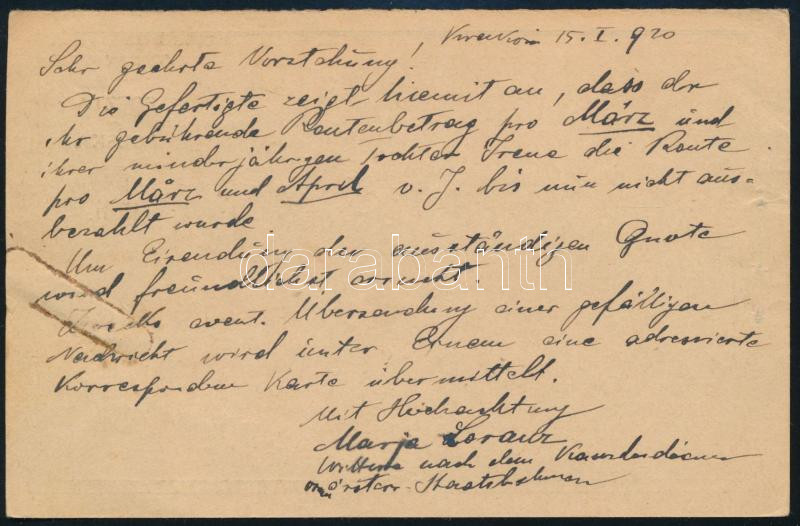 15. I. 920
Sehr geehrte Vorstehung!
Die Gefertigte zeigt hiemit an, dass der
ihr gebührende Rentenbetrag pro März und
ihrer minderjährigen Tochter Irene die Rente
pro März und April v. J. bis nun nicht aus-
bezahlt wurde
Um Einsendung der ausständigen Quote
wird freundlichst ersucht.
darabanth
Zwecks event. Übersendung einer gefälligen
Nachricht wird unter Einem eine adressierte
Korrespondenz Karte übermittelt.
Mit Hochachtung
Marja
Wittwe nach dem Kanzleidiener
österr. Staatsbahnen